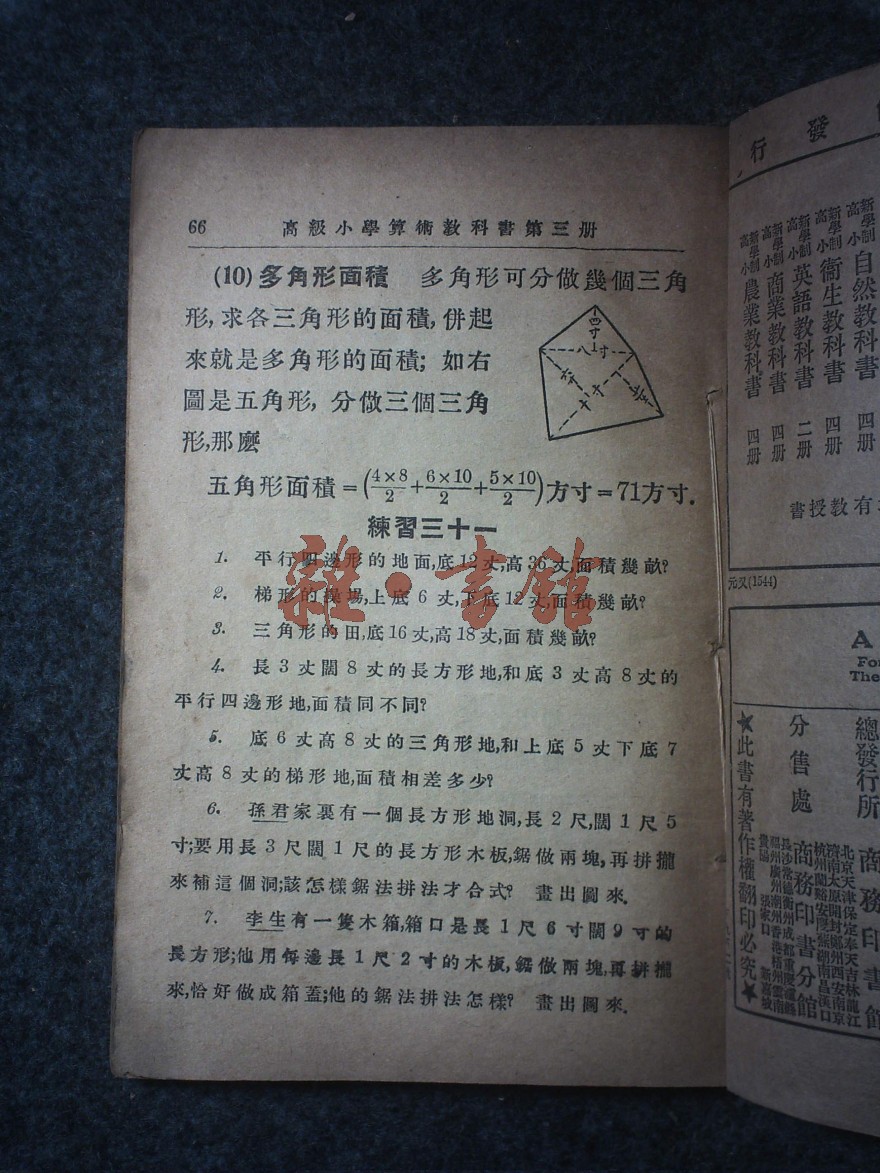 66 高級小學算術教科書第三册
(10) 多角形面積 多角形可分做幾個三角
形,求各三角形的面積,併起
來就是多角形的面積;如右
圖是五角形,分做三個三角
形,那麽
四寸
八寸
六寸
十寸
五寸
五角形面積=(4×8/2+6×10/2+5×10/2)方寸=71方寸.
練習三十一
1. 平行四邊形的地面,底12丈,高36丈,面積幾畝?
2. 梯形的操場,上底6丈,下底12丈,面積幾畝?
3. 三角形的田,底16丈,高18丈,面積幾畝?
4. 長3丈闊8丈的長方形地,和底3丈高8丈的
平行四邊形地,面積同不同?
5. 底6丈高8丈的三角形地,和上底5丈下底7
丈高8丈的梯形地,面積相差多少?
6. 孫君家裏有一個長方形地洞,長2尺,闊1尺5
寸;要用長3尺闊1尺的長方形木板,鋸做兩塊,再拼攏
來補這個洞;該怎樣鋸法拼法才合式? 畫出圖來.
7. 李生有一隻木箱,箱口是長1尺6寸闊9寸的
長方形;他用每邊長1尺2寸的木板,鋸做兩塊,再拼攏
來,恰好做成箱蓋;他的鋸法拼法怎樣? 畫出圖來.
雜·書館
發行
新學制高小自然教科書 四册
新學制高小衞生教科書 四册
新學制高小英語教科書 二册
新學制高小商業教科書 四册
新學制高小農業教科書 四册
書授教有
元又(1544)
A
For
The
總發行所 商務印書館
分售處 商務印書分館
★此書有著作權翻印必究★